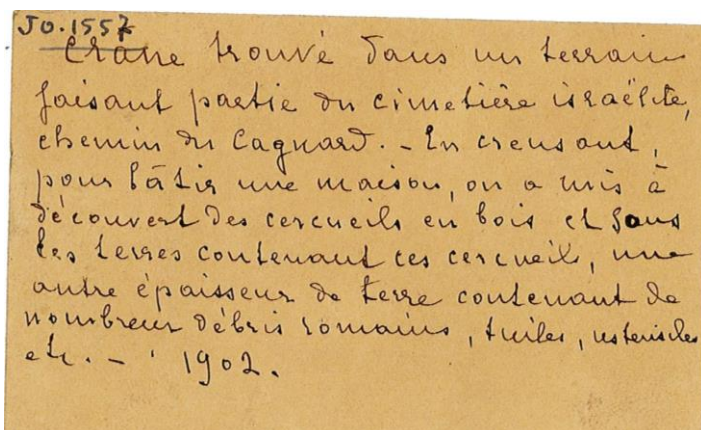 JO.1557
Crâne trouvé dans un terrain
faisant partie du cimetière israëlite,
chemin du Cagnard. - En creusant,
pour bâtir une maison, on a mis à
découvert des cercueils en bois et sous
les terres contenant ces cercueils, une
autre épaisseur de terre contenant de
nombreux débris romains, tuiles, ustensiles
etc. - 1902.